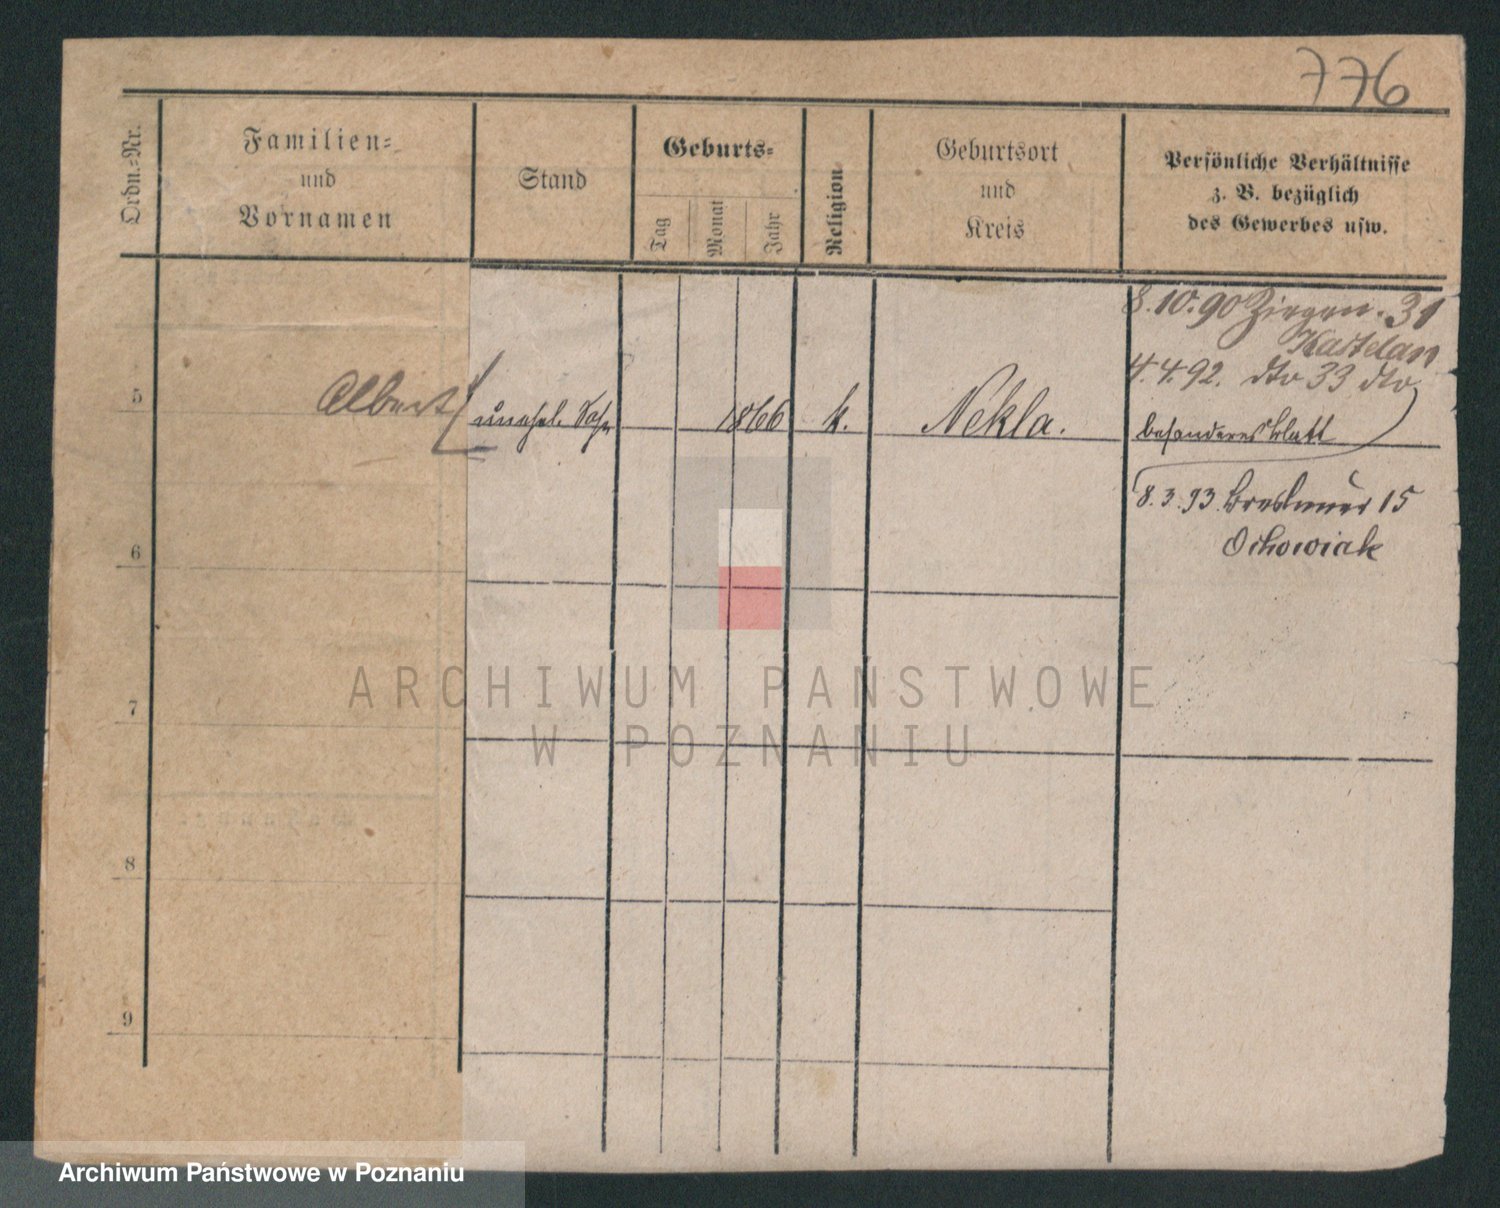 776
Ordn.=Nr.
Familien=
und
Vornamen
Stand
Geburts=
Tag
Monat
Jahr
Religion
Geburtsort
und
Kreis
Persönliche Verhältnisse
z. B. bezüglich
des Gewerbes usw.
8.10.90 Ziegen. 31
Kastelan
4.4.92. dto 33 dto
5 Albert unehel. Sohn 1866 k. Nekla. besonderes Blatt
8.3.93. Breslauer 15
Ochowiak
6
7
8
9
ARCHIWUM PAŃSTWOWE
W POZNANIU
Archiwum Państwowe w Poznaniu